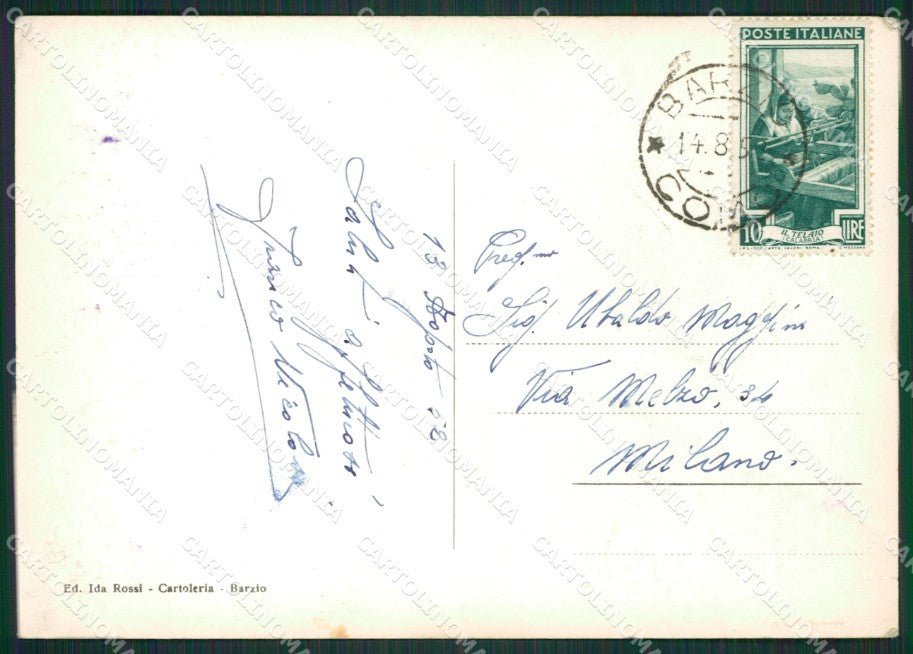 13 Agosto 52
Saluti affettuosi
Preg.mo
Sig. Ubaldo Maggini
Via Melzo, 34
Milano.
POSTE ITALIANE
10 LIRE
IL TELAIO
(CALABRIA)
BARZIO
14.8.5
COMO
Ed. Ida Rossi - Cartoleria - Barzio
CARTOLINOMANIA